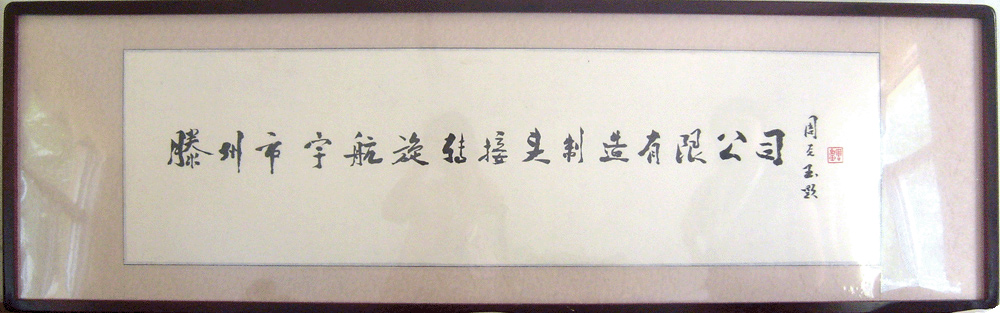 滕州市宇航旋转接头制造有限公司
周玉玺题